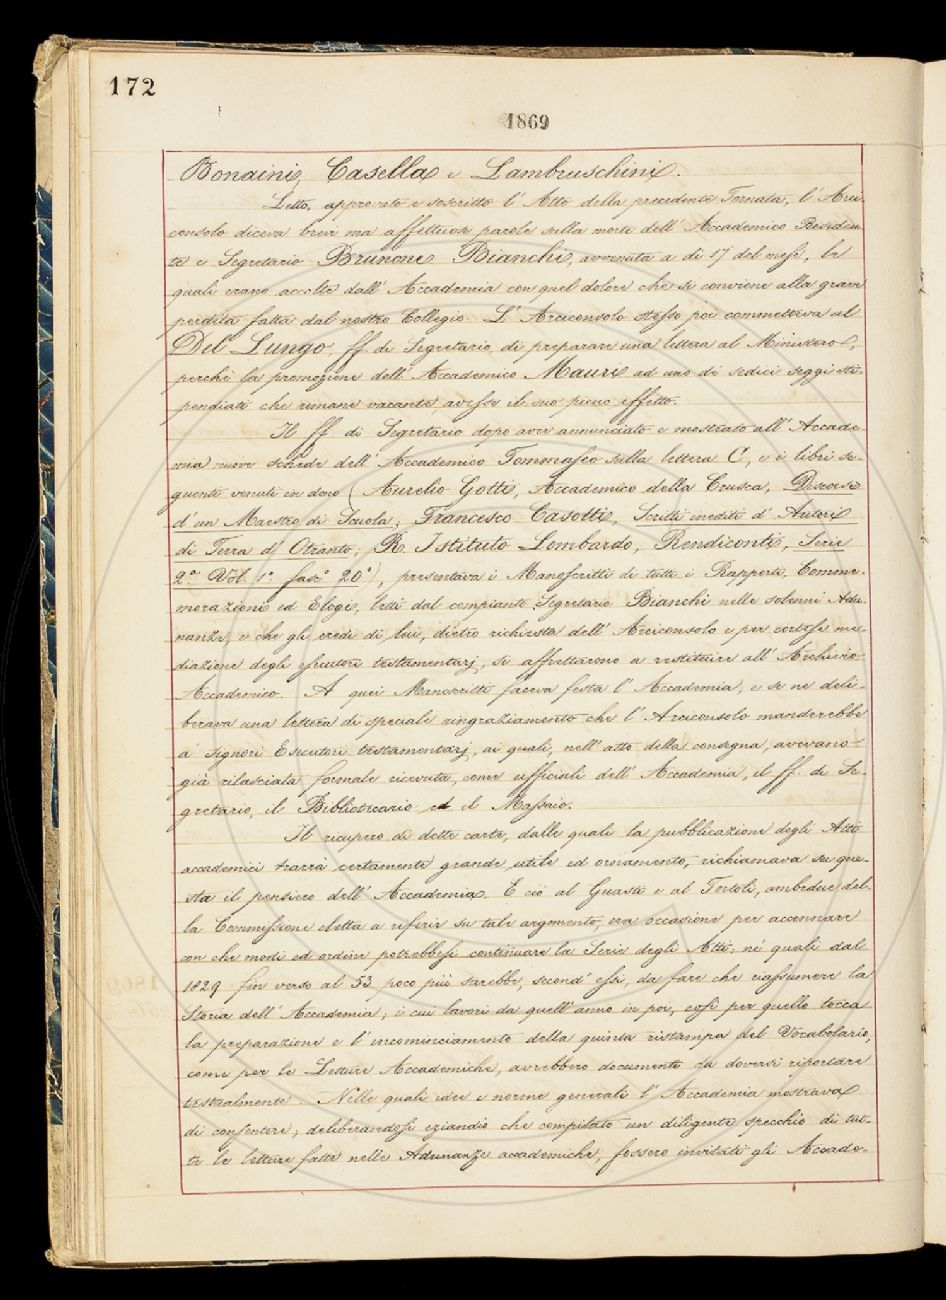 172
1869
Bonaini, Casella e Lambruschini.
Letto, approvato e soscritto l'Atto della precedente Tornata, l'Arci-
consolo diceva brevi ma affettuose parole sulla morte dell'Accademico Residen-
te e Segretario Brunone Bianchi, avvenuta a dì 17 del mese, le
quali erano accolte dall'Accademia con quel dolore che si conviene alla grave
perdita fatta dal nostro Collegio. L'Arciconsolo stesso poi commetteva al
Del Lungo, ff. di Segretario, di preparare una lettera al Ministero,
perchè la promozione dell'Accademico Mauri ad uno di sedici seggi sti-
pendiati che rimane vacante, avesse il suo pieno effetto.
Il ff. di Segretario dopo aver annunciato e mostrato all'Accade-
mia nuove schede dell'Accademico Tommaseo sulla lettera C, e i libri se-
guenti venuti in dono (Aurelio Gotti, Accademico della Crusca, Discorso
d'un Maestro di Scuola; Francesco Casotti, Scritti inediti d'Autori
di Terra d'Otranto; R. Istituto Lombardo, Rendiconti, Serie
2ª Vol. 1º fasc 20º), presentava i Manoscritti di tutti i Rapporti, Comme-
morazioni ed Elogi, letti dal compianto Segretario Bianchi nelle solenni Adu-
nanze, e che gli eredi di lui, dietro richiesta dell'Arciconsolo e per cortese me-
diazione degli esecutori testamentarj, si affrettarono a restituire all'Archivio
Accademico. A quei Manoscritti faceva festa l'Accademia, e se ne deli-
berava una lettera di speciale ringraziamento che l'Arciconsolo manderebbe
a' signori Esecutori testamentarj, ai quali, nell'atto della consegna, avevano
già rilasciata formale ricevuta, come ufficiali dell'Accademia, il ff. di Se-
gretario, il Bibliotecario ed il Massaio.
Il ricupero di dette carte, dalle quali la pubblicazione degli Atti
accademici trarrà certamente grande utile ed ornamento, richiamava su que-
sta il pensiero dell'Accademia. E ciò al Guasti e al Tortoli, ambedue del-
la Commissione eletta a riferir su tale argomento, era occasione per accennare
con che modi ed ordine potrebbesi continuare la Serie degli Atti; ne' quali dal
1829 fin verso al 53 poco più sarebbe, second'essi, da fare che riassumere la
Storia dell'Accademia; i cui lavori da quell'anno in poi, così per quello tocca
la preparazione e l'incominciamento della quinta ristampa del Vocabolario,
come per le Letture Accademiche, avrebbero documenti da doversi riportare
testualmente. Nelle quali idee e norme generali l'Accademia mostrava
di consentire; deliberandosi eziandio che compilato un diligente specchio di tut-
te le letture fatte nelle Adunanze accademiche, fossero invitati gli Accade-